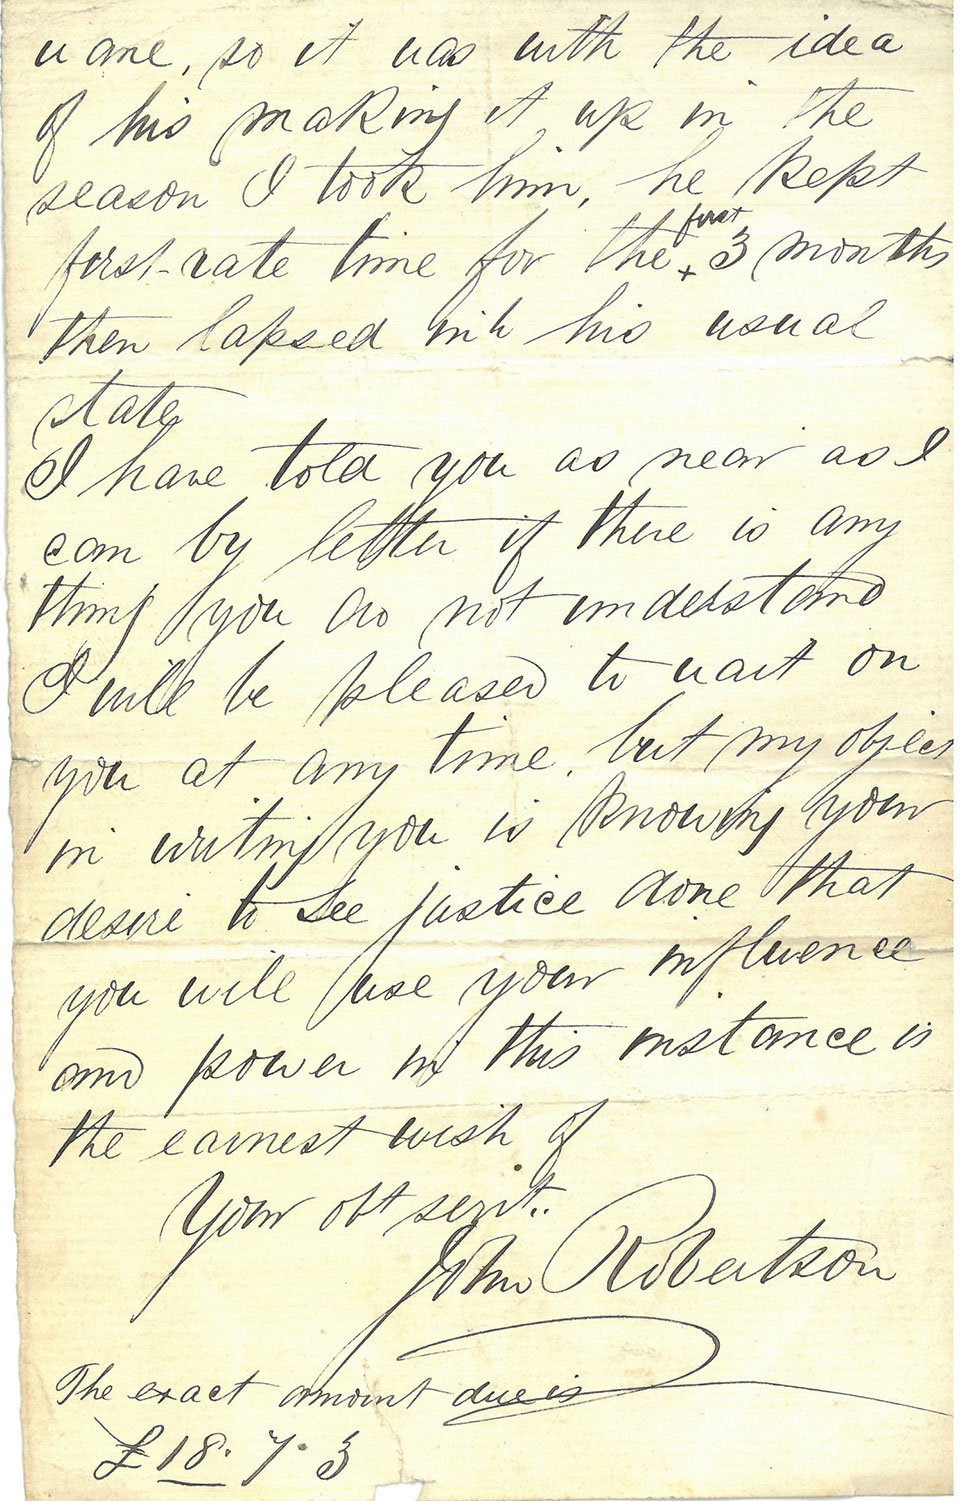 wane, so it was with the idea
of his making it up in the
season I took him, he kept
first-rate time for the first 3 months
then lapsed into his usual
state
I have told you as near as I
can by letter if there is any
thing you do not understand
I will be pleased to wait on
you at any time, but my object
in writing you is knowing your
desire to see justice done that
you will use your influence
and power in this instance is
the earnest wish of
Your obt servt..
John Robertson
The exact amount due is
£18.7.3